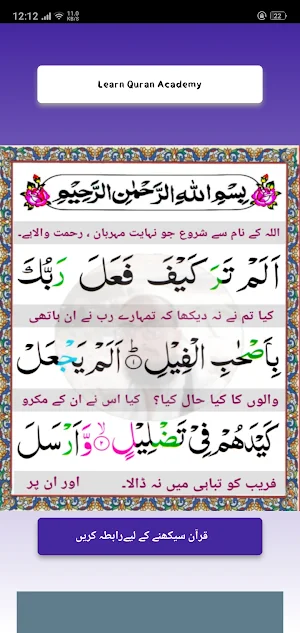 12:12 11.0 KB/S 22
Learn Quran Academy
بِسْمِ اللهِ الرَّحْمٰنِ الرَّحِيْمِ
اللہ کے نام سے شروع جو نہایت مہربان ، رحمت والاہے۔
اَلَمْ تَرَ كَيْفَ فَعَلَ رَبُّكَ
کیا تم نے نہ دیکھا کہ تمہارے رب نے ان ہاتھی
بِاَصْحٰبِ الْفِيْلِ ۝۱ اَلَمْ يَجْعَلْ
والوں کا کیا حال کیا؟ کیا اس نے ان کے مکرو
كَيْدَهُمْ فِيْ تَضْلِيْلٍ ۝۲ وَّاَرْسَلَ
فریب کو تباہی میں نہ ڈالا۔ اور ان پر
قرآن سیکھنے کے لیے رابطہ کریں